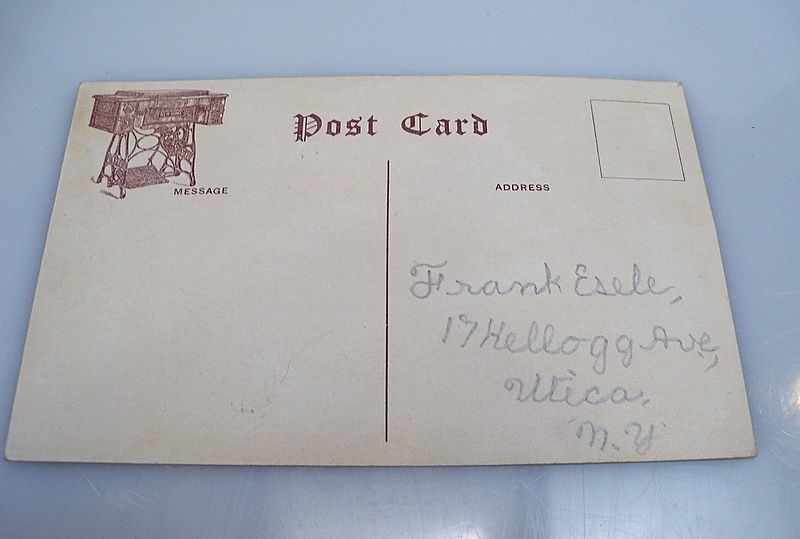 Post Card
MESSAGE
ADDRESS
Frank Esele,
17 Kellogg Ave,
Utica,
N.Y